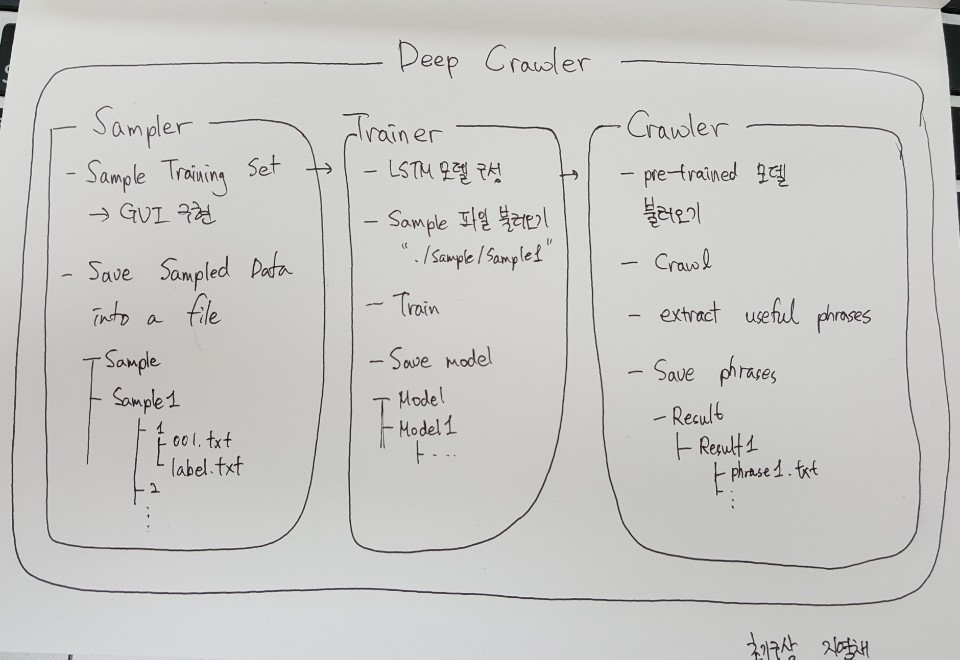 Deep Crawler
Sampler
- Sample Training Set
→ GUI 구현
- Save Sampled Data
into a file
Sample
Sample1
1
001.txt
label.txt
2
Trainer
- LSTM 모델 구성
- Sample 파일 불러오기
"./Sample/Sample1"
- Train
- Save model
Model
Model1
...
Crawler
- pre-trained 모델
불러오기
- Crawl
- extract useful phrases
- Save phrases
- Result
Result1
phrase1.txt
초기구상